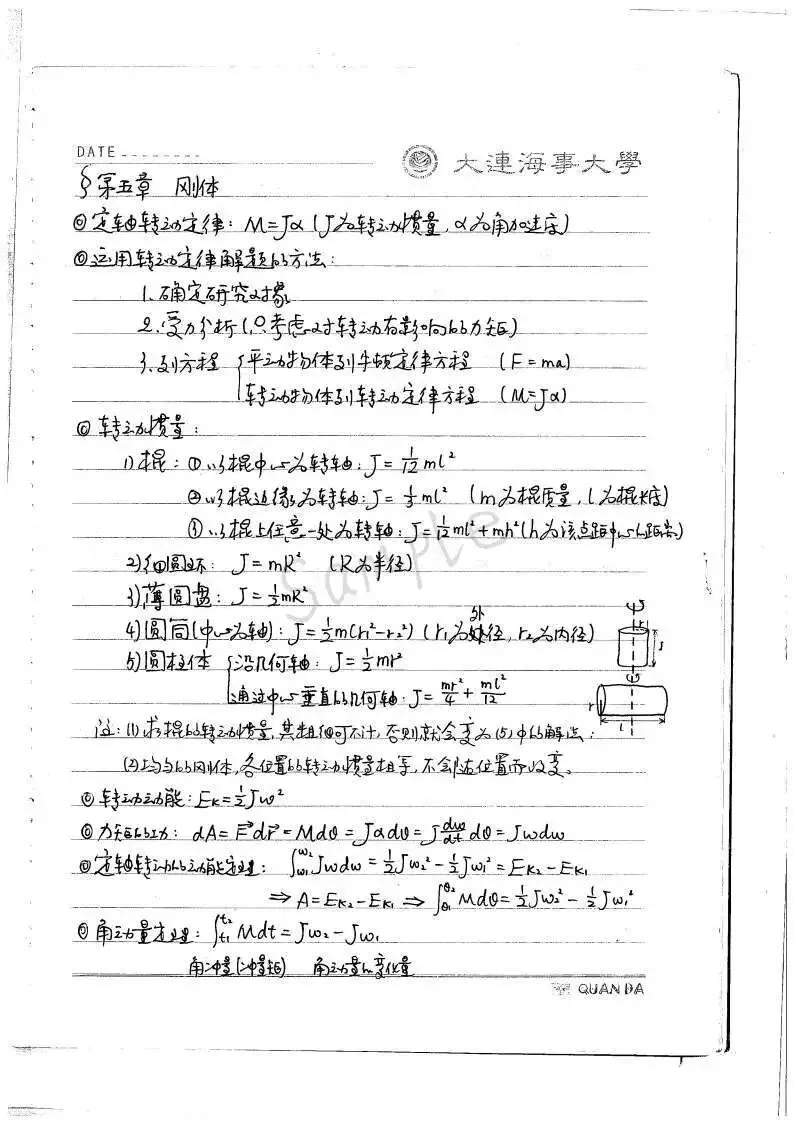 DATE
大連海事大學
§第五章 刚体
◎定轴转动定律: M=Jα (J为转动惯量, α为角加速度)
◎运用转动定律解题的方法:
1.确定研究对象
2.受力分析(只考虑对转动有影响的力矩)
3.列方程 { 平动物体列牛顿定律方程 (F=ma)
转动物体列转动定律方程 (M=Jα)
◎转动惯量:
1)棍: ①以棍中心为转轴: J=1/12 ml²
②以棍边缘为转轴: J=1/3 ml² (m为棍质量, l为棍长度)
③以棍上任意一处为转轴: J=1/12 ml²+mh² (h为该点距中心的距离)
2)细圆环: J=mR² (R为半径)
3)薄圆盘: J=1/2 mR²
4)圆筒(中心为轴): J=1/2 m(r₁²-r₂²) (r₁为外径, r₂为内径)
5)圆柱体 { 沿几何轴: J=1/2 mr²
通过中心垂直的几何轴: J=mr²/4 + ml²/12
r
l
注: (1)求棍的转动惯量,其粗细可不计,否则就会变为(5)中的解法;
(2)均匀的刚体,各位置的转动惯量相等,不会随位置而改变。
◎转动动能: Eₖ=1/2 Jω²
◎力矩的功: dA=F⃗dr⃗=Mdθ=Jαdθ=J dω/dt dθ=Jωdω
◎定轴转动的动能定理: ∫_ω₁^ω₂ Jωdω=1/2 Jω₂²-1/2 Jω₁²=Eₖ₂-Eₖ₁
⇒A=Eₖ₂-Eₖ₁ ⇒ ∫_θ₁^θ₂ Mdθ=1/2 Jω₂²-1/2 Jω₁²
◎角动量定理: ∫_t₁^t₂ Mdt=Jω₂-Jω₁
角冲量(冲量矩) 角动量的变化量
QUANDA
Sample